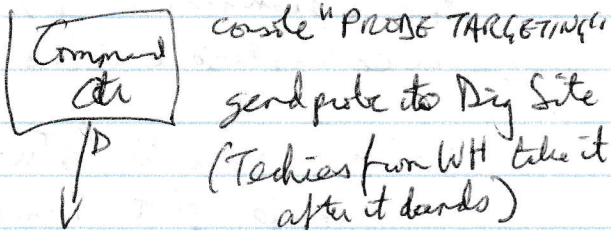 Command
Ctr
D
console "PROBE TARGETING"
send probe to Dig Site
(Techies from WH take it
after it lands)